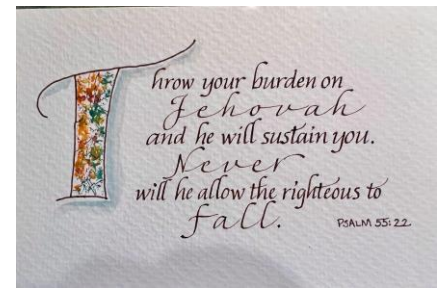 Throw your burden on
Jehovah
and he will sustain you.
Never
will he allow the righteous to
fall.
PSALM 55:22